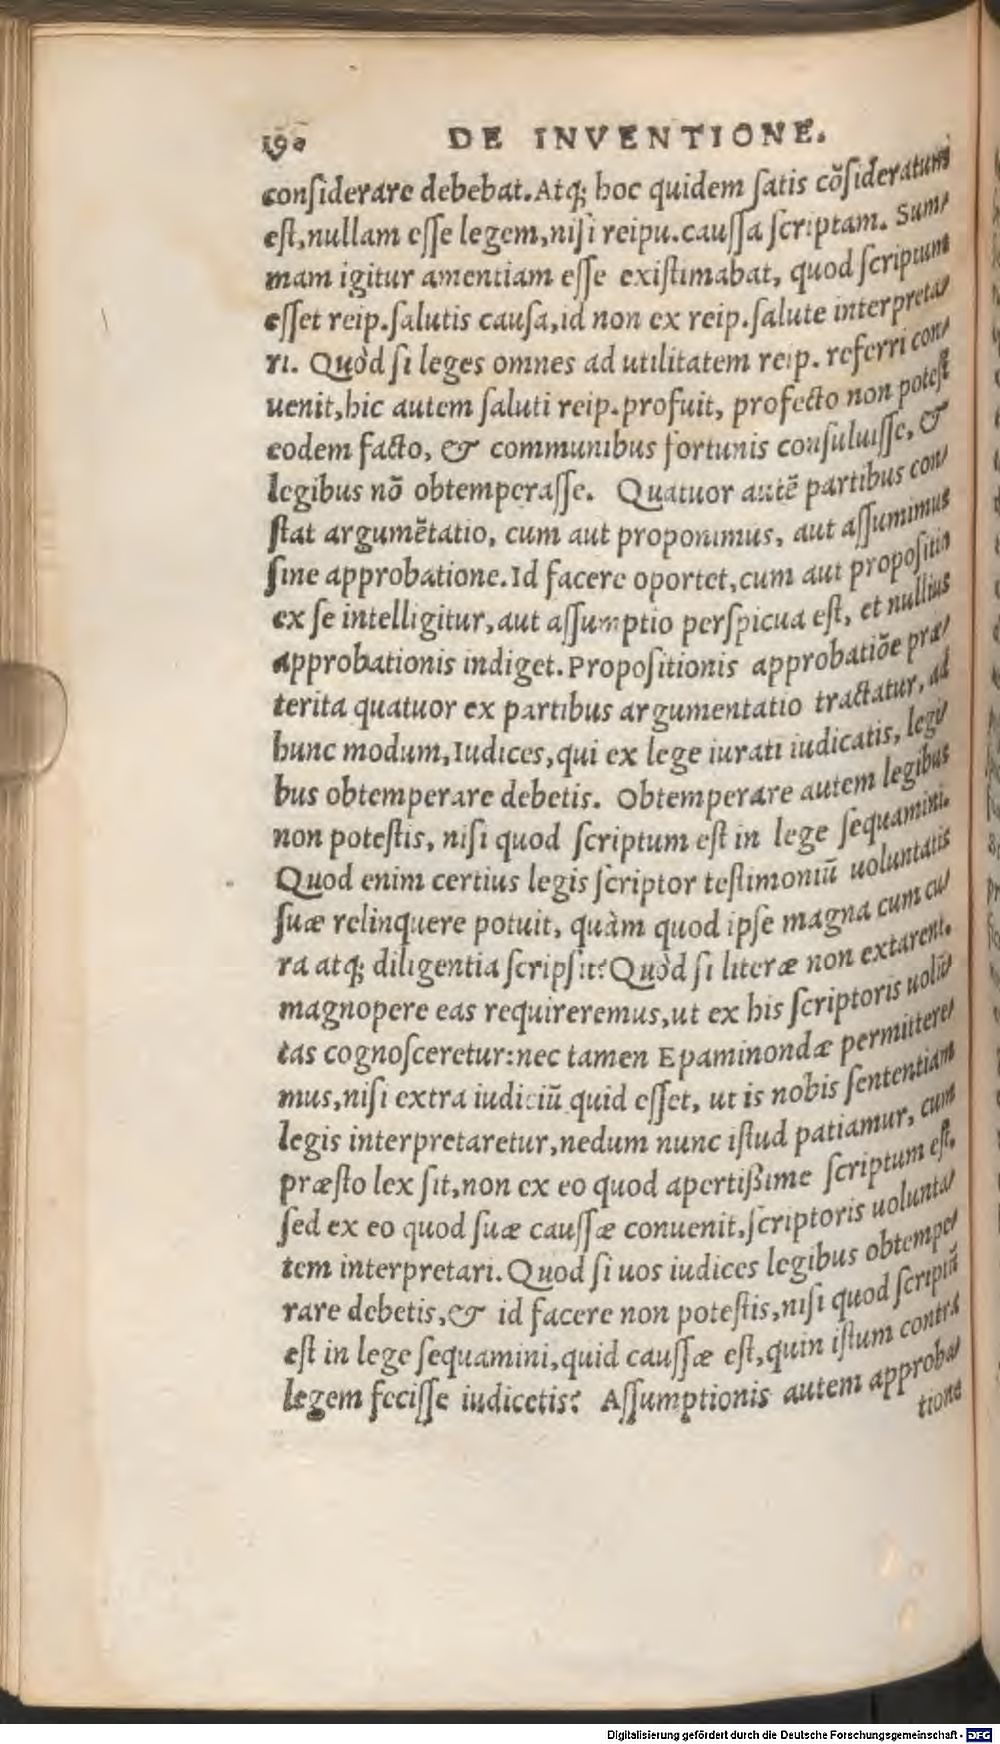 190 DE INVENTIONE.
conſiderare debebat. Atq; hoc quidem ſatis cõſideratum
eſt, nullam eſſe legem, niſi reipu. cauſſa ſcriptam. Sum/
mam igitur amentiam eſſe exiſtimabat, quod ſcriptum
eſſet reip. ſalutis cauſa, id non ex reip. ſalute interpreta/
ri. Quòd ſi leges omnes ad utilitatem reip. referri con/
uenit, hic autem ſaluti reip. profuit, profecto non poteſt
eodem facto, & communibus fortunis conſuluiſſe, &
legibus nõ obtemperaſſe. Quatuor autẽ partibus con/
ſtat argumẽtatio, cum aut proponimus, aut aſſumimus
ſine approbatione. Id facere oportet, cum aut propoſitio
ex ſe intelligitur, aut aſſumptio perſpicua eſt, et nullius
approbationis indiget. Propoſitionis approbatiõe præ/
terita quatuor ex partibus argumentatio tractatur, ad
hunc modum, Iudices, qui ex lege iurati iudicatis, legi/
bus obtemperare debetis. Obtemperare autem legibus
non poteſtis, niſi quod ſcriptum eſt in lege ſequamini.
Quod enim certius legis ſcriptor teſtimoniũ uoluntatis
ſuæ relinquere potuit, quàm quod ipſe magna cum cu/
ra atq; diligentia ſcripſit? Quòd ſi literæ non extarent.
magnopere eas requireremus, ut ex his ſcriptoris uolũ/
tas cognoſceretur: nec tamen Epaminondæ permittere/
mus, niſi extra iudiciũ quid eſſet, ut is nobis ſententiam
legis interpretaretur, nedum nunc iſtud patiamur, cum
præſto lex ſit, non ex eo quod apertißime ſcriptum eſt,
ſed ex eo quod ſuæ cauſſæ conuenit, ſcriptoris uolunta/
tem interpretari. Quod ſi uos iudices legibus obtempe/
rare debetis, & id facere non poteſtis, niſi quod ſcriptũ
eſt in lege ſequamini, quid cauſſæ eſt, quin iſtum contra
legem feciſſe iudicetis? Aſſumptionis autem approba/
tione
Digitalisierung gefördert durch die Deutsche Forschungsgemeinschaft - DFG